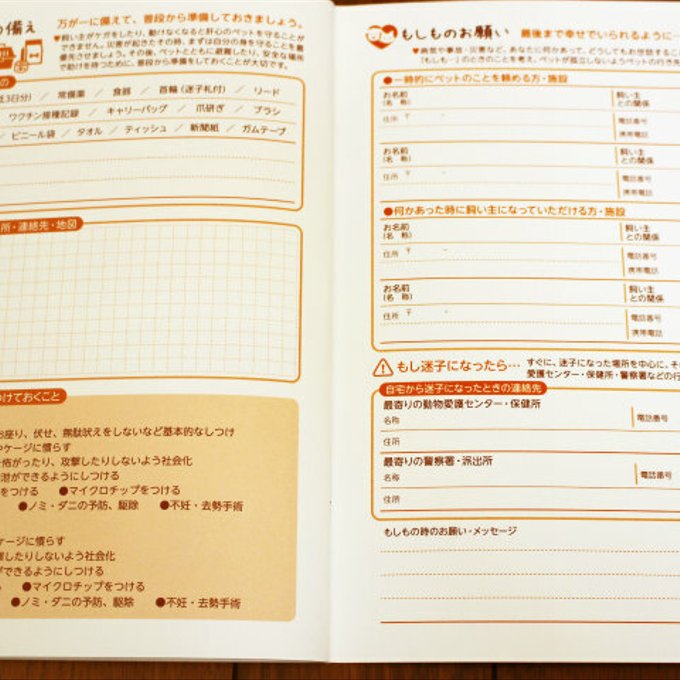 の備え
万が一に備えて、普段から準備しておきましょう。
♥飼い主がケガをしたり、動けなくなると肝心のペットを守ることが
できません。災害が起きたその時、まずは自分の身を守ることを最
優先させましょう。その後、ペットとともに避難したり、安全な場所
で助けを待つために、普段から準備をしておくことが大切です。
3日分) / 常備薬 / 食器 / 首輪(迷子札付) / リード
ワクチン接種記録 / キャリーバッグ / 爪研ぎ / ブラシ
/ ビニール袋 / タオル / ティッシュ / 新聞紙 / ガムテープ
所・連絡先・地図
つけておくこと
お座り、伏せ、無駄吠えをしないなど基本的なしつけ
ケージに慣らす
怖がったり、攻撃したりしないよう社会化
泄ができるようにしつける
をつける ●マイクロチップをつける
●ノミ・ダニの予防、駆除 ●不妊・去勢手術
ケージに慣らす
撃したりしないよう社会化
ができるようにしつける
●マイクロチップをつける
●ノミ・ダニの予防、駆除 ●不妊・去勢手術
もしものお願い 最後まで幸せでいられるように…
♥病気や事故・災害など、あなたに何かあって、どうしてもお世話すること
「もしも…」のときのことを考え、ペットが孤立しないようペットの行き先
●一時的にペットのことを頼める方・施設
お名前 飼い主
(名 称) との関係
住所 〒 電話番号
携帯電話
お名前 飼い主
(名 称) との関係
住所 〒 電話番号
携帯電話
●何かあった時に飼い主になっていただける方・施設
お名前 飼い主
(名 称) との関係
住所 〒 電話番号
携帯電話
お名前 飼い主
(名 称) との関係
住所 〒 電話番号
携帯電話
もし迷子になったら… すぐに、迷子になった場所を中心に、そ
愛護センター・保健所・警察署などの行
自宅から迷子になったときの連絡先
最寄りの動物愛護センター・保健所
名称 電話番号
住所
最寄りの警察署・派出所
名称 電話番号
住所
もしもの時のお願い・メッセージ